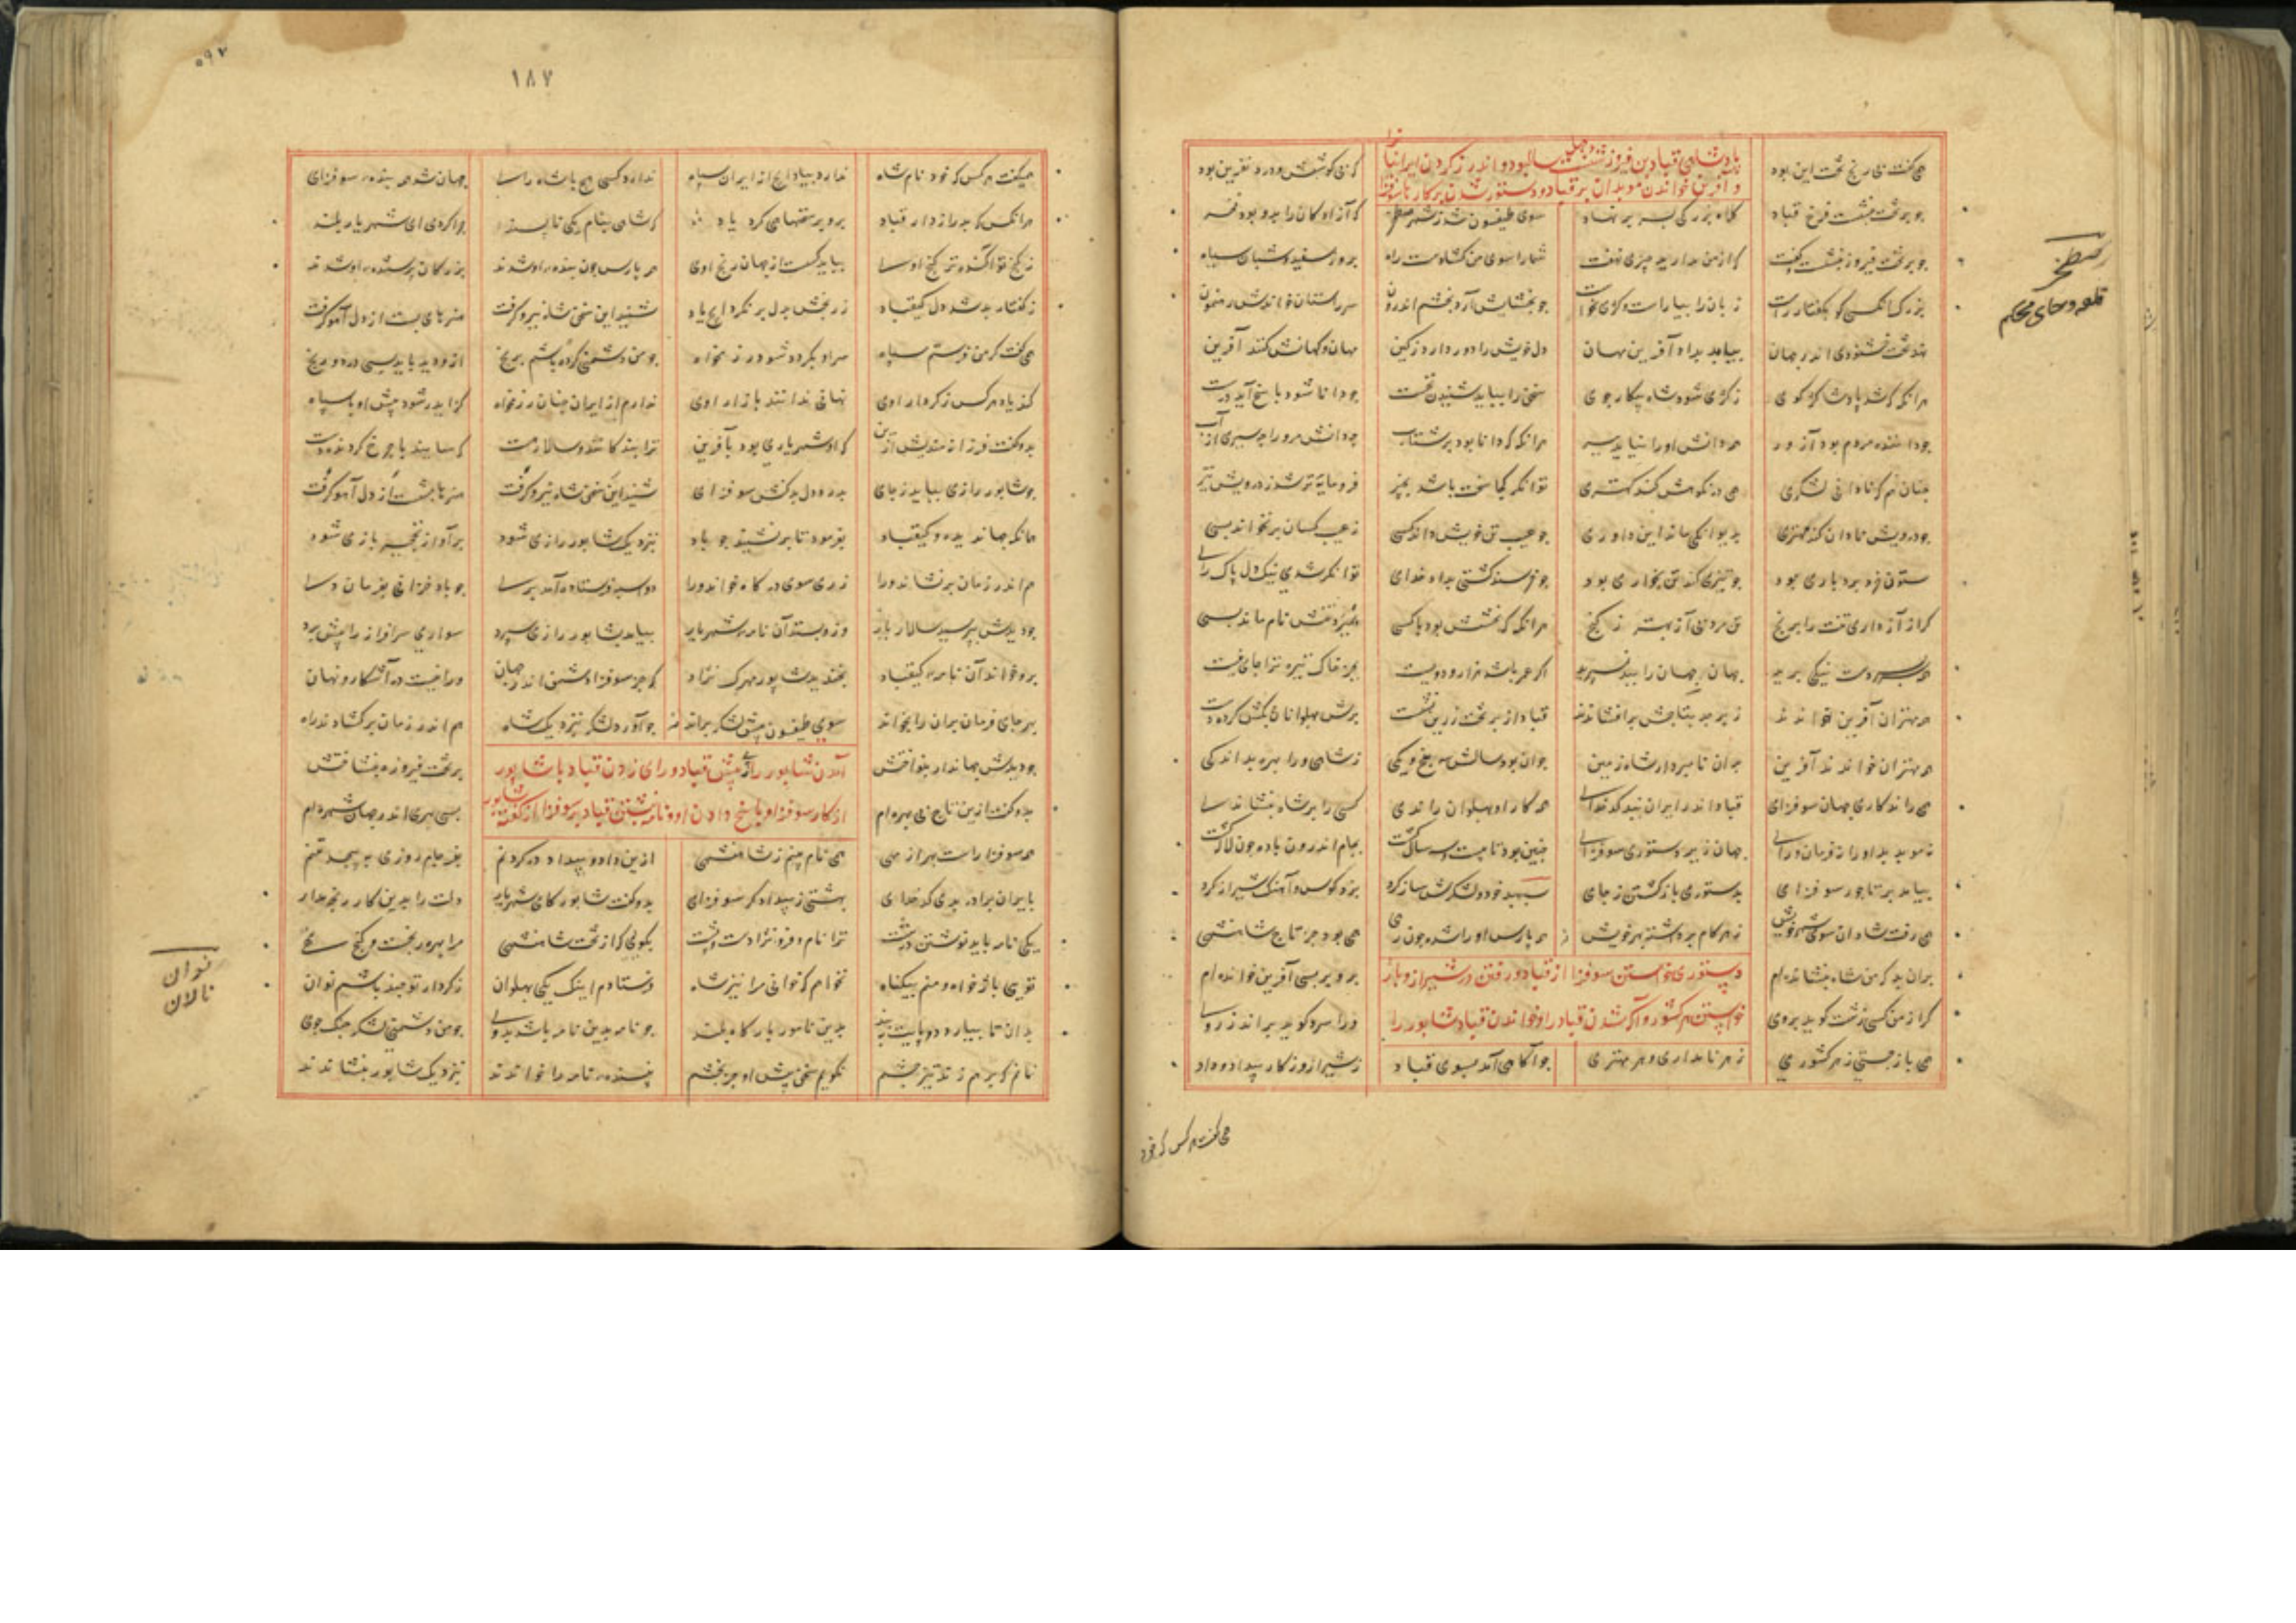 پادشاهی قباد بن فیروز چهل سال بود و اندرز کردن ایرانیانرا
و آفرین خواندن موبدان بر قباد و دستور شدن بر کار تا سوفزا
همی گفت بی رنج تخت این بود که بی کوشش و درد نفرین بود
چو بر تخت بنشست فرخ قباد کلاه بزرگی بسر بر نهاد سوی طیفسون شد ز شهر صطخر که آزادکانرا بدو بود فخر
چو بر تخت فیروز بنشست گفت که از من مدارید چیزی نهفت شما را سوی من کشادست راه بروز سفید و شبان سیاه
بزرک آنکسی کو بگفتار راست زبان را بیاراست و کژی نخواست چو بخشایش آرد بخشم اندرون سر راستان خواندش رهنمون
نهد تخت خشنودی اندر جهان بیابد بداد آفرین مهان دل خویش را دور دارد ز کین مهان و کهانش کنند آفرین
هرانگه که شد پادشا کژ گوی ز کژی شود شاه پیکار جوی سخن را بباید شنیدن نخست چو دانا شود پاسخ آید درست
چو داننده مردم بود آزور همی دانش او را نیاید ببر هرانگه که دانا بود پر شتاب چه دانش مر او را چه در سر آب
چنان هم که نادان لشکری همی در نکوهش کند کهتری توانگر کجا سخت باشد بچیز فرومایه تر شد ز درویش نیز
چو درویش نادان کند مهتری بدیوانگی ماند این داوری چو عیب تن خویش داند کسی ز عیب کسان بر نخواند بسی
ستون خرد بردباری بود چو تیزی کند تن بخواری بود چو خرسند گشتی بداد خدای توانگر شدی نیک دل پاک رای
گر از آز داری تنت را برنج تن مرد بی آز بهتر ز گنج هرانگه که بخشش بود با کسی بمیرد تنش نام ماند بسی
همه سر بسر دست نیکی برید جهان جهان را ببد مسپرید اگر عمر باشد هزار و دویست بجز خاک تیره ترا جای نیست
همه مهتران آفرین خواندند زبرجد بتاجش بر افشاندند قباد از بر تخت زرین نشست برش پهلوانان بکش کرده دست
همه مهتران خواندند آفرین بران نامبردار شاه زمین جوان بود سالش سه پنج و یکی ز شاهی ورا بهره بد اندکی
همی راند کار جهان سوفزای قباد اندر ایران نبد کدخدای همه کار او پهلوان راندی کسی را بر شاه ننشاندی
نه موبد بد او را نه فرمان و رای جهان زیر دستوری سوفزای چنین بود تا بیست و سه ساله گشت بجام اندرون باده چون لاله گشت
بیامد بر تاجور سوفزای بدستوری بازگشتن ز جای سپهبد خود و لشکرش ساز کرد بزد کوس و آهنگ شیراز کرد
همی رفت شادان سوی شهر خویش ز هر کام برداشته بهر خویش همه پارس او را شده چون رهی همی بود جز تاج شاهنشهی
دستوری خواستن سوفزا از قباد و رفتن در شیراز و باژ
خواستن هر کشور و آکه شدن قباد را و خواندن قباد شاپور را
بران بد که من شاه بنشانده ام برو بر بسی آفرین خوانده ام
گر از من کسی زشت گوید بروی ورا سرد گوید براند ز روی
همی باژ جستی ز هر کشوری ز هر نامداری و هر مهتری چو آگاهی آمد بسوی قباد ز شیراز و ز کار بیداد و داد
همی گفت هر کس که خود
صطخر
قلعه و جای محکم
۱۸۷
۵۹۷
همیگفت هر کس که خود نام شاه ندارد بیاد اج از ایران سپاه ندارد کسی هیچ با شاه رای جهان شد همه بنده سوفزای
هرانکس که بد رازدار قباد برو بر سخنهای کرد یاد که شاهی بنام یکی ناپسند چرا کردی ای شهریار بلند
ز گنج تو آگنده تر گنج اوی بباید گسست از جهان رنج اوی همه پارس چون بنده او شدند بزرکان پرستنده او شدند
ز گفتار بد شد دل کیقباد ز رنجش بدل بر نکرد ایچ یاد شنید این سخن شاه نیرو گرفت هنرهای بست از دل آهو گرفت
همی گفت گر من فرستم سپاه سر او بگردد شود رزم خواه چو من دشمنی کرده باشم برنج ازو دید باید بسی درد و رنج
کند یاد هر کس ز کردار اوی نهانی ندانند بازار اوی ندارم از ایران چنان رزمخواه کز ایدر شود پیش او با سپاه
بدو گفت فرزانه مندیش ازین که او شهریاری بود بآفرین ترا بندکانند و سالار هست که سایند با چرخ گردنده دست
چو شاپور رازی بیاید ز جای بدرد دل بدکنش سوفزای شنید این سخن شاه نیرو گرفت هنرها بشست از دل آهو گرفت
همانگه جهاندیده کیقباد بفرمود تا بر نشیند چو باد بنزدیک شاپور رازی شود بر آواز نخچیر بازی شود
هم اندر زمان بر نشاند ورا ز ری سوی درگاه خواند ورا دو اسبه فرستاده آمد بری چو باد خزان بفرمان دی
چو دیدش بپرسید سالار بار وزو بستد آن نامه شهریار بیامد بشاپور رازی سپرد سواری سرافراز را پیش برد
برو خواند آن نامه کیقباد بخندید شاپور مهرک نژاد که جز سوفزا دشمن اندر جهان ورا نیست در آشکار و نهان
بهر جای فرمان بران را بخواند سوی طیفسون پیش لشکر براند چو آورد لشکر بنزدیک شاه هم اندر زمان بر گشادند راه
آمدن شاپور رازی پیش قباد و رای زدن قباد با شاپور
از کار سوفزا و پاسخ دادن او و نامه نبشتن قباد بر سوفزا از گفته شاپور
چو دیدش جهاندار بنواختش بر تخت فیروزه بنشاختش
بدو گفت ازین تاج بی بهره ام بسی بهری اندر جهان شهره ام
همه سوفزا راست بهر از مهی همی نام بینم ز شاهنشهی ازین داد و بیداد در گردنم بفرجام روزی بپیچد تنم
بایران برادر بدی کدخدای بهشتی ز بیدادگر سوفزای بدو گفت شاپور کای شهریار دلت را بدین کار رنجه مدار
یکی نامه باید نوشتن درشت ترا نام و فر و نژادست و پشت بگوئی که از تخت شاهنشهی مرا بهره رنجست و گنج تهی
توئی باژ خواه و منم بیگناه نخواهم که خوانی مرا نیز شاه فرستادم اینک یکی پهلوان ز کردار تو چند باشم نوان
بدان تا بیارد دو پایت ببند بدین نامور بارگاه بلند چو نامه بدین نامه باشد بدوی چو من دشمنی لشکر جنگ جوی
نمانم که بر هم زند تیز چشم نگویم سخن پیش او جز بخشم نویسنده نامه را خواندند بنزدیک شاپور بنشاندند
نوان
نالان